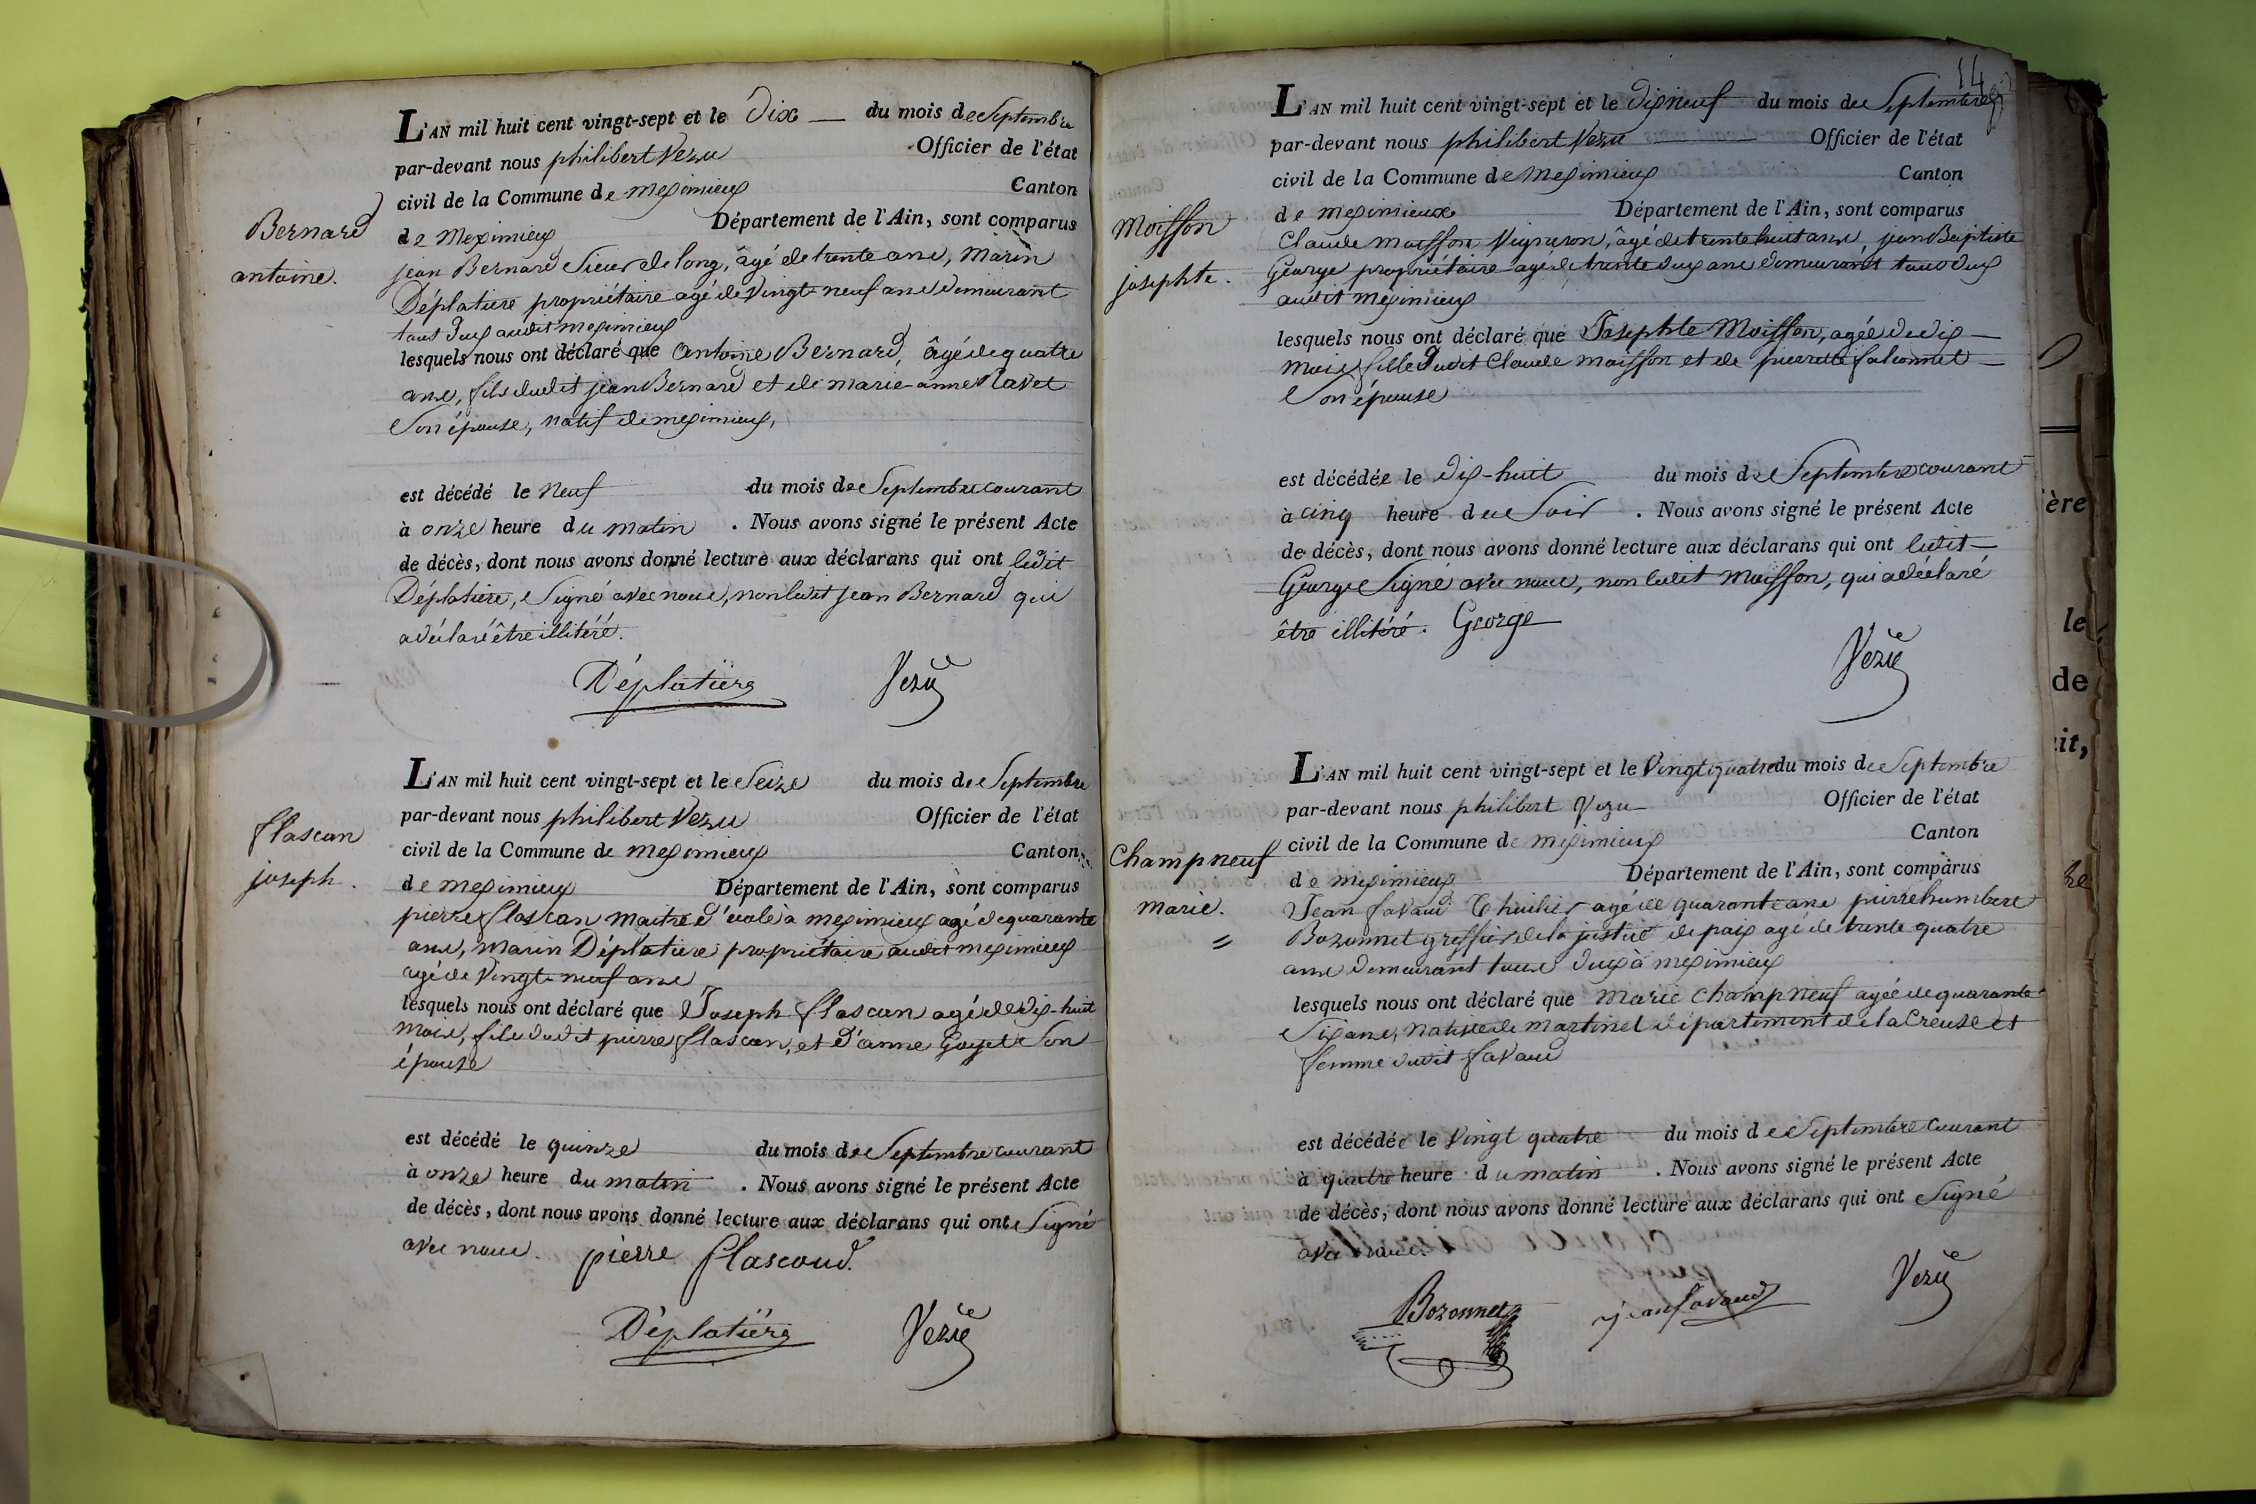 Bernard
antoine.
L'AN mil huit cent vingt-sept et le Dix du mois de Septembre
par-devant nous philibert Vezu Officier de l'état
civil de la Commune de meximieux Canton
de Meximieux Département de l'Ain, sont comparus
jean Bernard Sieur de long, âgé de trente ans, Marin
Déplatiere propriétaire agé de Vingt neuf ans demeurant
tous Deux audit meximieux
lesquels nous ont déclaré que Antoine Bernard, âgé de quatre
ans, fils dudit jean Bernard et de marie-anne
Son épouse, natif de meximieux,
est décédé le Neuf du mois de Septembre courant
à onze heure du matin . Nous avons signé le présent Acte
de décès, dont nous avons donné lecture aux déclarans qui ont ledit
Déplatiere, Signé avec nous, non ledit jean Bernard qui
a déclaré être illitéré.
Déplatière Vezu
flascan
joseph.
L'AN mil huit cent vingt-sept et le Seize du mois de Septembre
par-devant nous philibert Vezu Officier de l'état
civil de la Commune de meximieux Canton
de meximieux Département de l'Ain, sont comparus
pierre flascan maitre d'école à meximieux agé de quarante
ans, marin Déplatiere propriétaire audit meximieux
agé de Vingt neuf ans
lesquels nous ont déclaré que Joseph flascan agé de dix-huit
mois, fils dudit pierre flascan, et D'anne Goyet Son
épouse
est décédé le quinze du mois de Septembre courant
à onze heure du matin . Nous avons signé le présent Acte
de décès, dont nous avons donné lecture aux déclarans qui ont Signé
avec nous. pierre flascoud.
Déplatière Vezu
14
Moisson
josephte.
L'AN mil huit cent vingt-sept et le dix neuf du mois de Septembre
par-devant nous philibert Vezu Officier de l'état
civil de la Commune de Meximieux Canton
de meximieux Département de l'Ain, sont comparus
Claude moisson Vigneron, âgé de trente huit ans, jean Baptiste
George propriétaire agé de trente deux ans demeurant tous deux
audit meximieux
lesquels nous ont déclaré que Josephte Moisson, agée de dix
mois fille dudit Claude moisson et de pierrette falconnet
Son épouse
est décédée le dix-huit du mois de Septembre courant
à cinq heure du Soir . Nous avons signé le présent Acte
de décès, dont nous avons donné lecture aux déclarans qui ont ledit
George Signé avec nous, non ledit moisson, qui a déclaré
être illitéré. George
Vezu
Champneuf
marie.
L'AN mil huit cent vingt-sept et le Vingt quatre du mois de Septembre
par-devant nous philibert Vezu Officier de l'état
civil de la Commune de meximieux Canton
de meximieux Département de l'Ain, sont comparus
Jean favaud Thuilier agé de quarante ans pierre humbert
Bozonnet greffier de la justice de paix agé de trente quatre
ans demeurant tous deux à meximieux
lesquels nous ont déclaré que Marie Champneuf agée de quarante
Six ans, native de martinet département de la Creuse et
femme dudit favaud
est décédée le Vingt quatre du mois de Septembre courant
à quatre heure du matin . Nous avons signé le présent Acte
de décès, dont nous avons donné lecture aux déclarans qui ont Signé
avec nous.
Bozonnet jean favaud Vezu
ère
le
de
it,